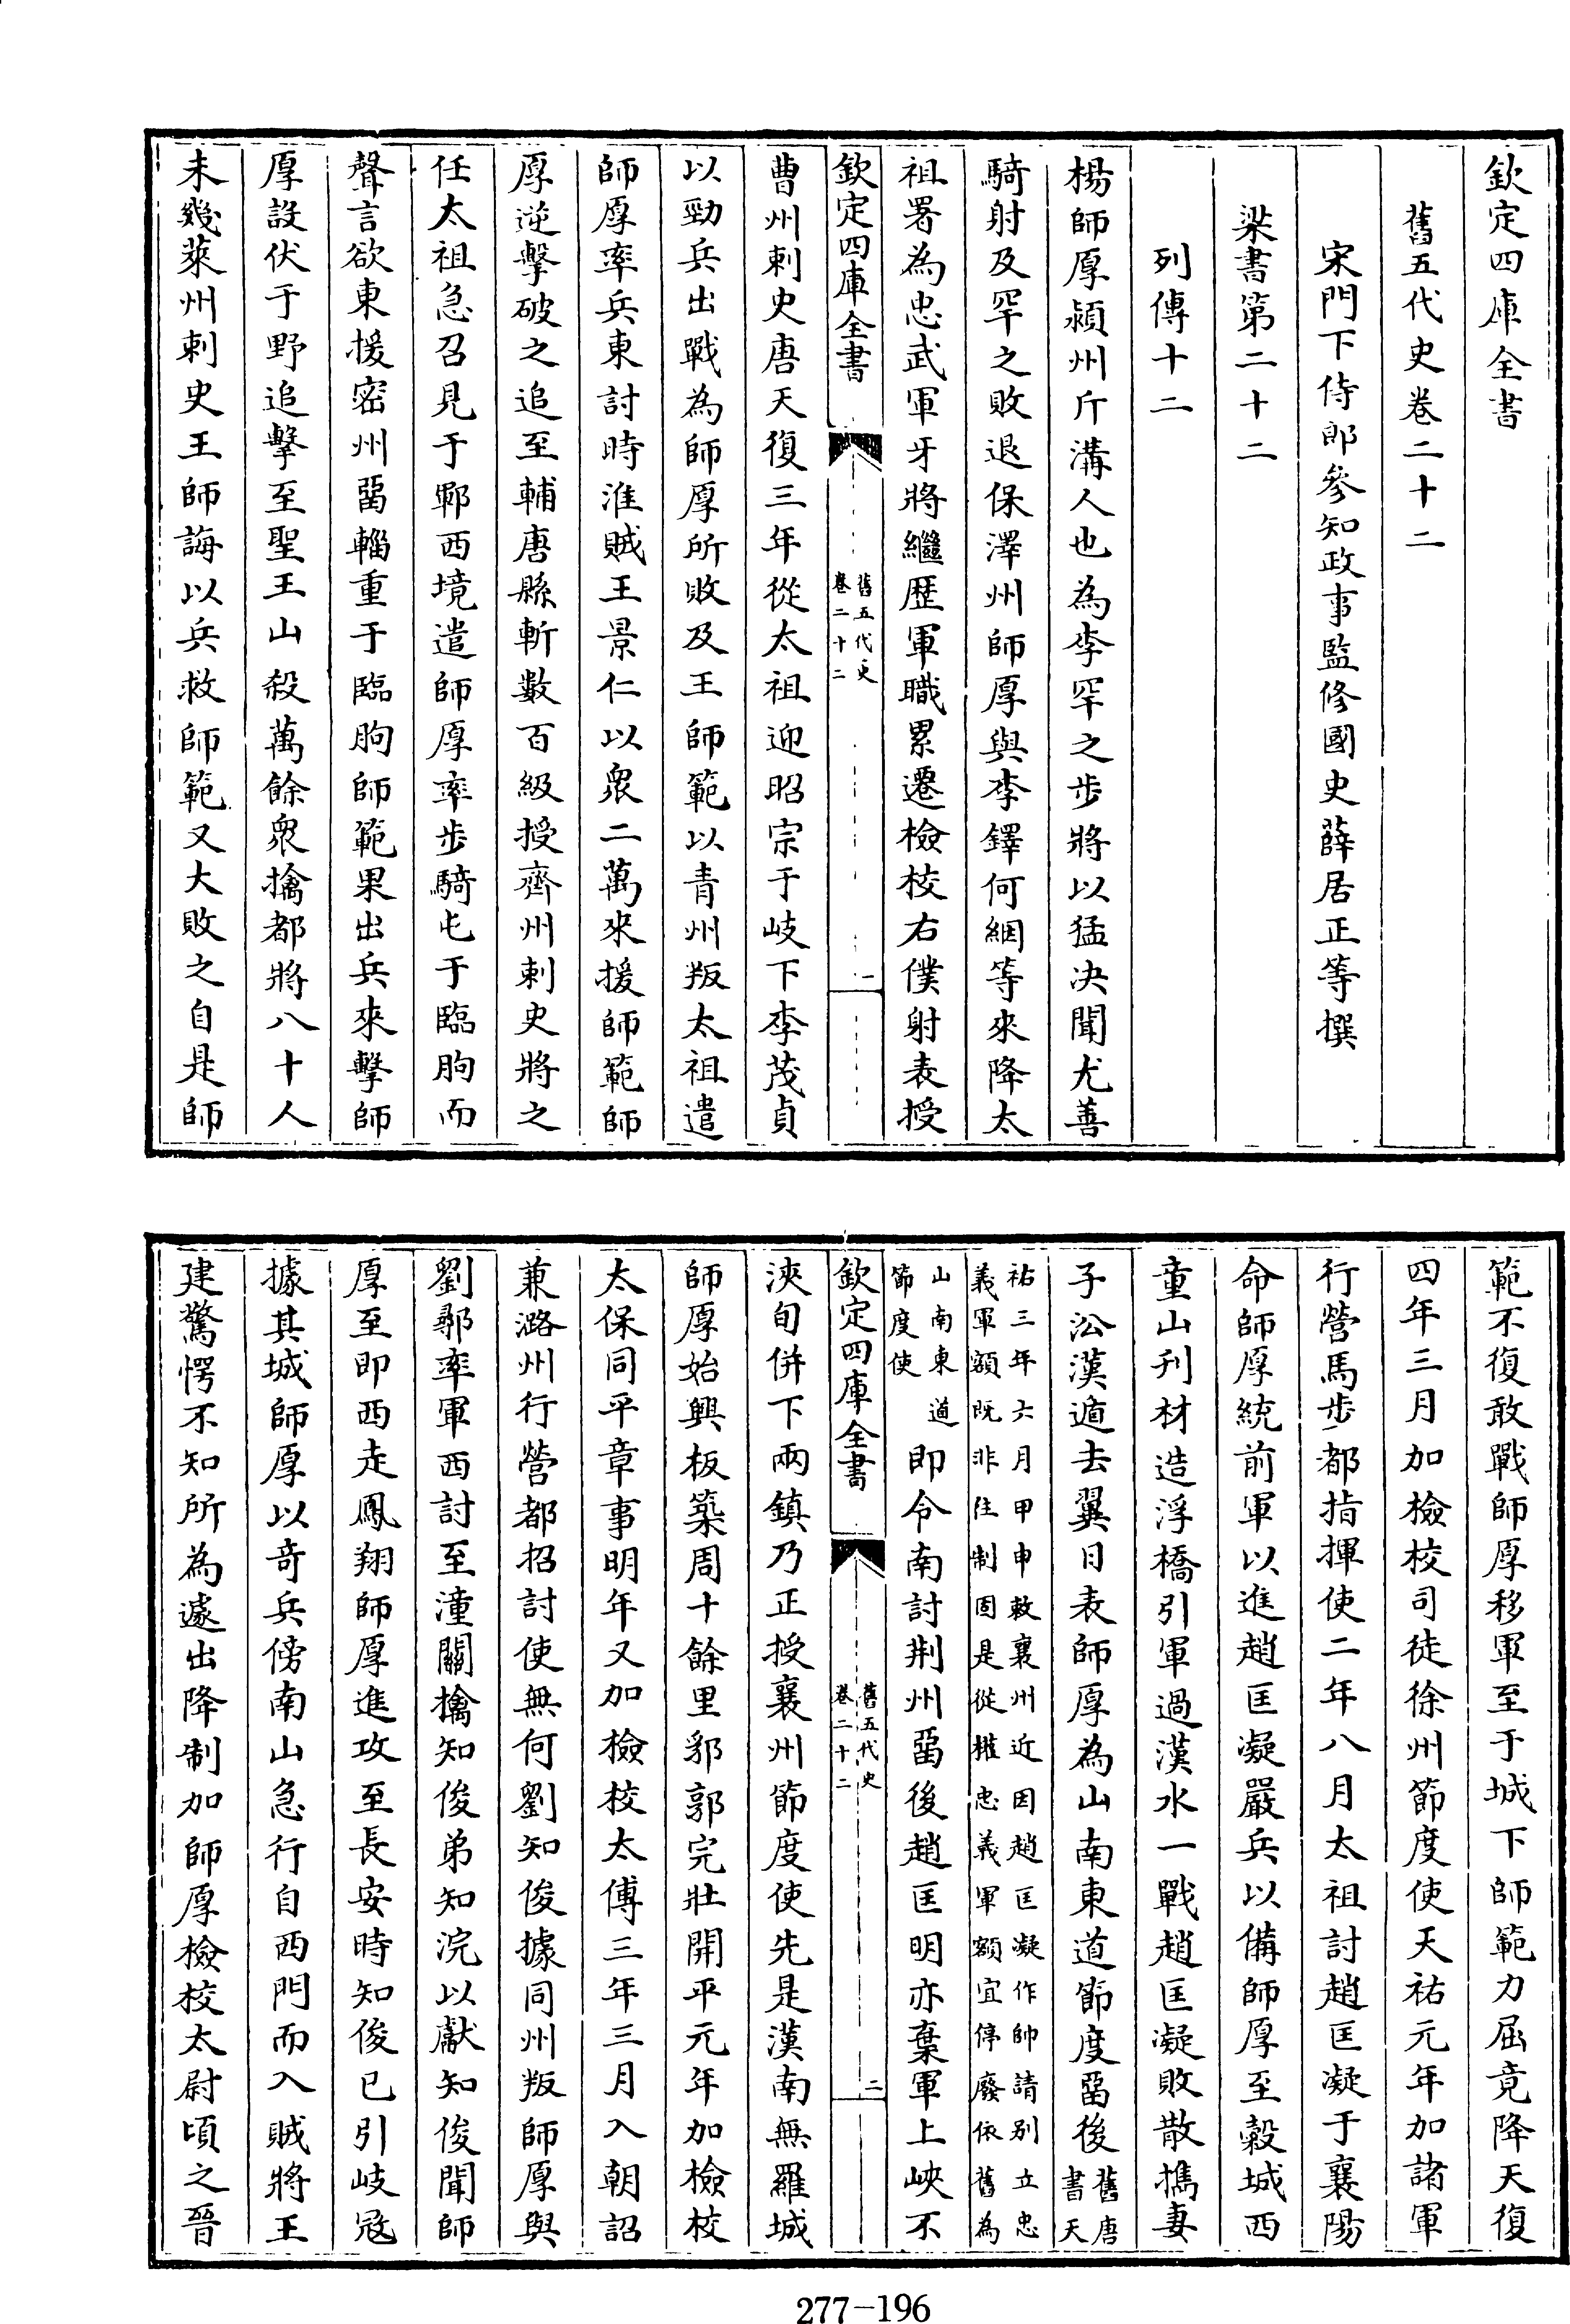 欽定四庫全書
舊五代史卷二十二
宋門下侍郎參知政事監修國史薛居正等撰
梁書第二十二
列傳十二
楊師厚潁州斤溝人也為李罕之步將以猛決聞尤善
騎射及罕之敗退保澤州師厚與李鐸何絪等來降太
祖署為忠武軍牙將繼歷軍職累遷檢校右僕射表授
欽定四庫全書
舊五代史
卷二十二
一
曹州刺史唐天復三年從太祖迎昭宗于岐下李茂貞
以勁兵出戰為師厚所敗及王師範以青州叛太祖遣
師厚率兵東討時淮賊王景仁以眾二萬來援師範師
厚逆擊破之追至輔唐縣斬數百級授齊州刺史將之
任太祖急召見于鄆西境遣師厚率步騎屯于臨朐而
聲言欲東援密州畱輜重于臨朐師範果出兵來擊師
厚設伏于野追擊至聖王山殺萬餘眾擒都將八十人
未幾萊州刺史王師誨以兵救師範又大敗之自是師
範不復敢戰師厚移軍至于城下師範力屈竟降天復
四年三月加檢校司徒徐州節度使天祐元年加諸軍
行營馬步都指揮使二年八月太祖討趙匡凝于襄陽
命師厚統前軍以進趙匡凝嚴兵以備師厚至穀城西
童山刋材造浮橋引軍過漢水一戰趙匡凝敗散擕妻
子㳂漢遁去翼日表師厚為山南東道節度畱後舊唐
書天
祐三年六月甲申敕襄州近因趙匡凝作帥請別立忠
義軍額既非往制固是從權忠義軍額宜停廢依舊為
山南東道
節度使
即令南討荆州畱後趙匡明亦棄軍上峽不
欽定四庫全書
舊五代史
卷二十二
二
浹旬併下兩鎮乃正授襄州節度使先是漢南無羅城
師厚始興板築周十餘里郛郭完壯開平元年加檢校
太保同平章事明年又加檢校太傅三年三月入朝詔
兼潞州行營都招討使無何劉知俊據同州叛師厚與
劉鄩率軍西討至潼關擒知俊弟知浣以獻知俊聞師
厚至即西走鳳翔師厚進攻至長安時知俊已引岐寇
據其城師厚以奇兵傍南山急行自西門而入賊將王
建驚愕不知所為遽出降制加師厚檢校太尉頃之晉
277-196